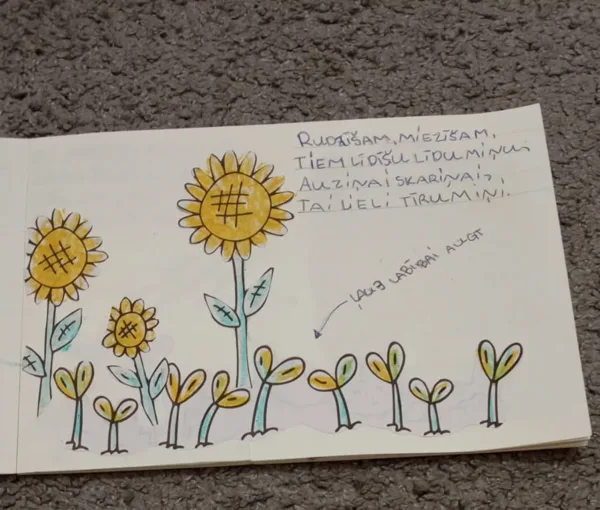 RUDZĪŠAM, MIEZĪŠAM,
TIEM LĪDĪŠU LĪDUMIŅU;
AUZIŅAI SKARIŅAI,
TAI LIELI TĪRUMIŅI.
ĻAUJ LABĪBAI AUGT